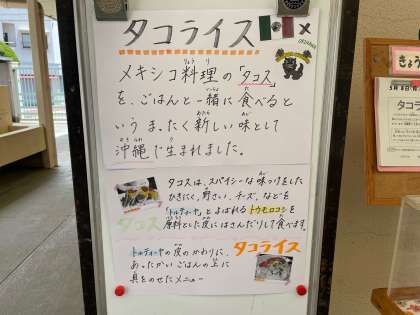 タコライス
メキシコ料理の「タコス」
を、ごはんと一緒に食べると
いうまったく新しい味として
沖縄で生まれました。
タコスは、スパイシーな味つけをした
ひきにく、野さい、チーズ、などを
「トルティーヤ」とよばれるトウモロコシを
原料とした皮にはさんだりして食べます。
タコス
タコライス
トルティーヤの皮のかわりに、
あったかいごはんの上に
具をのせたメニュー
きょう
タコラ